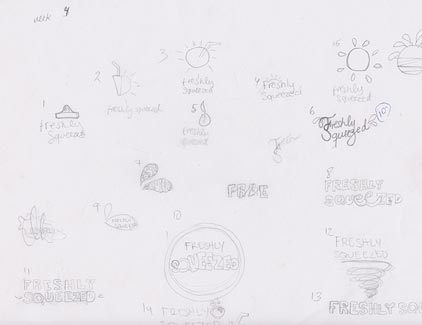 week 4
3
Freshly
Squeezed
2
freshly squeezed
4
Freshly
Squeezed
freshly
Squeezed
1
Freshly
Squeezed
5
Freshly
Squeezed
6
Freshly
Squeezed
10
8
FRESHLY
SQUEEZED
9
10
FRESHLY
SQUEEZED
11
FRESHLY
SQUEEZED
12
FRESHLY
SQUEEZED
13
FRESHLY SQU
14 FRESHLY
SQUEEZED